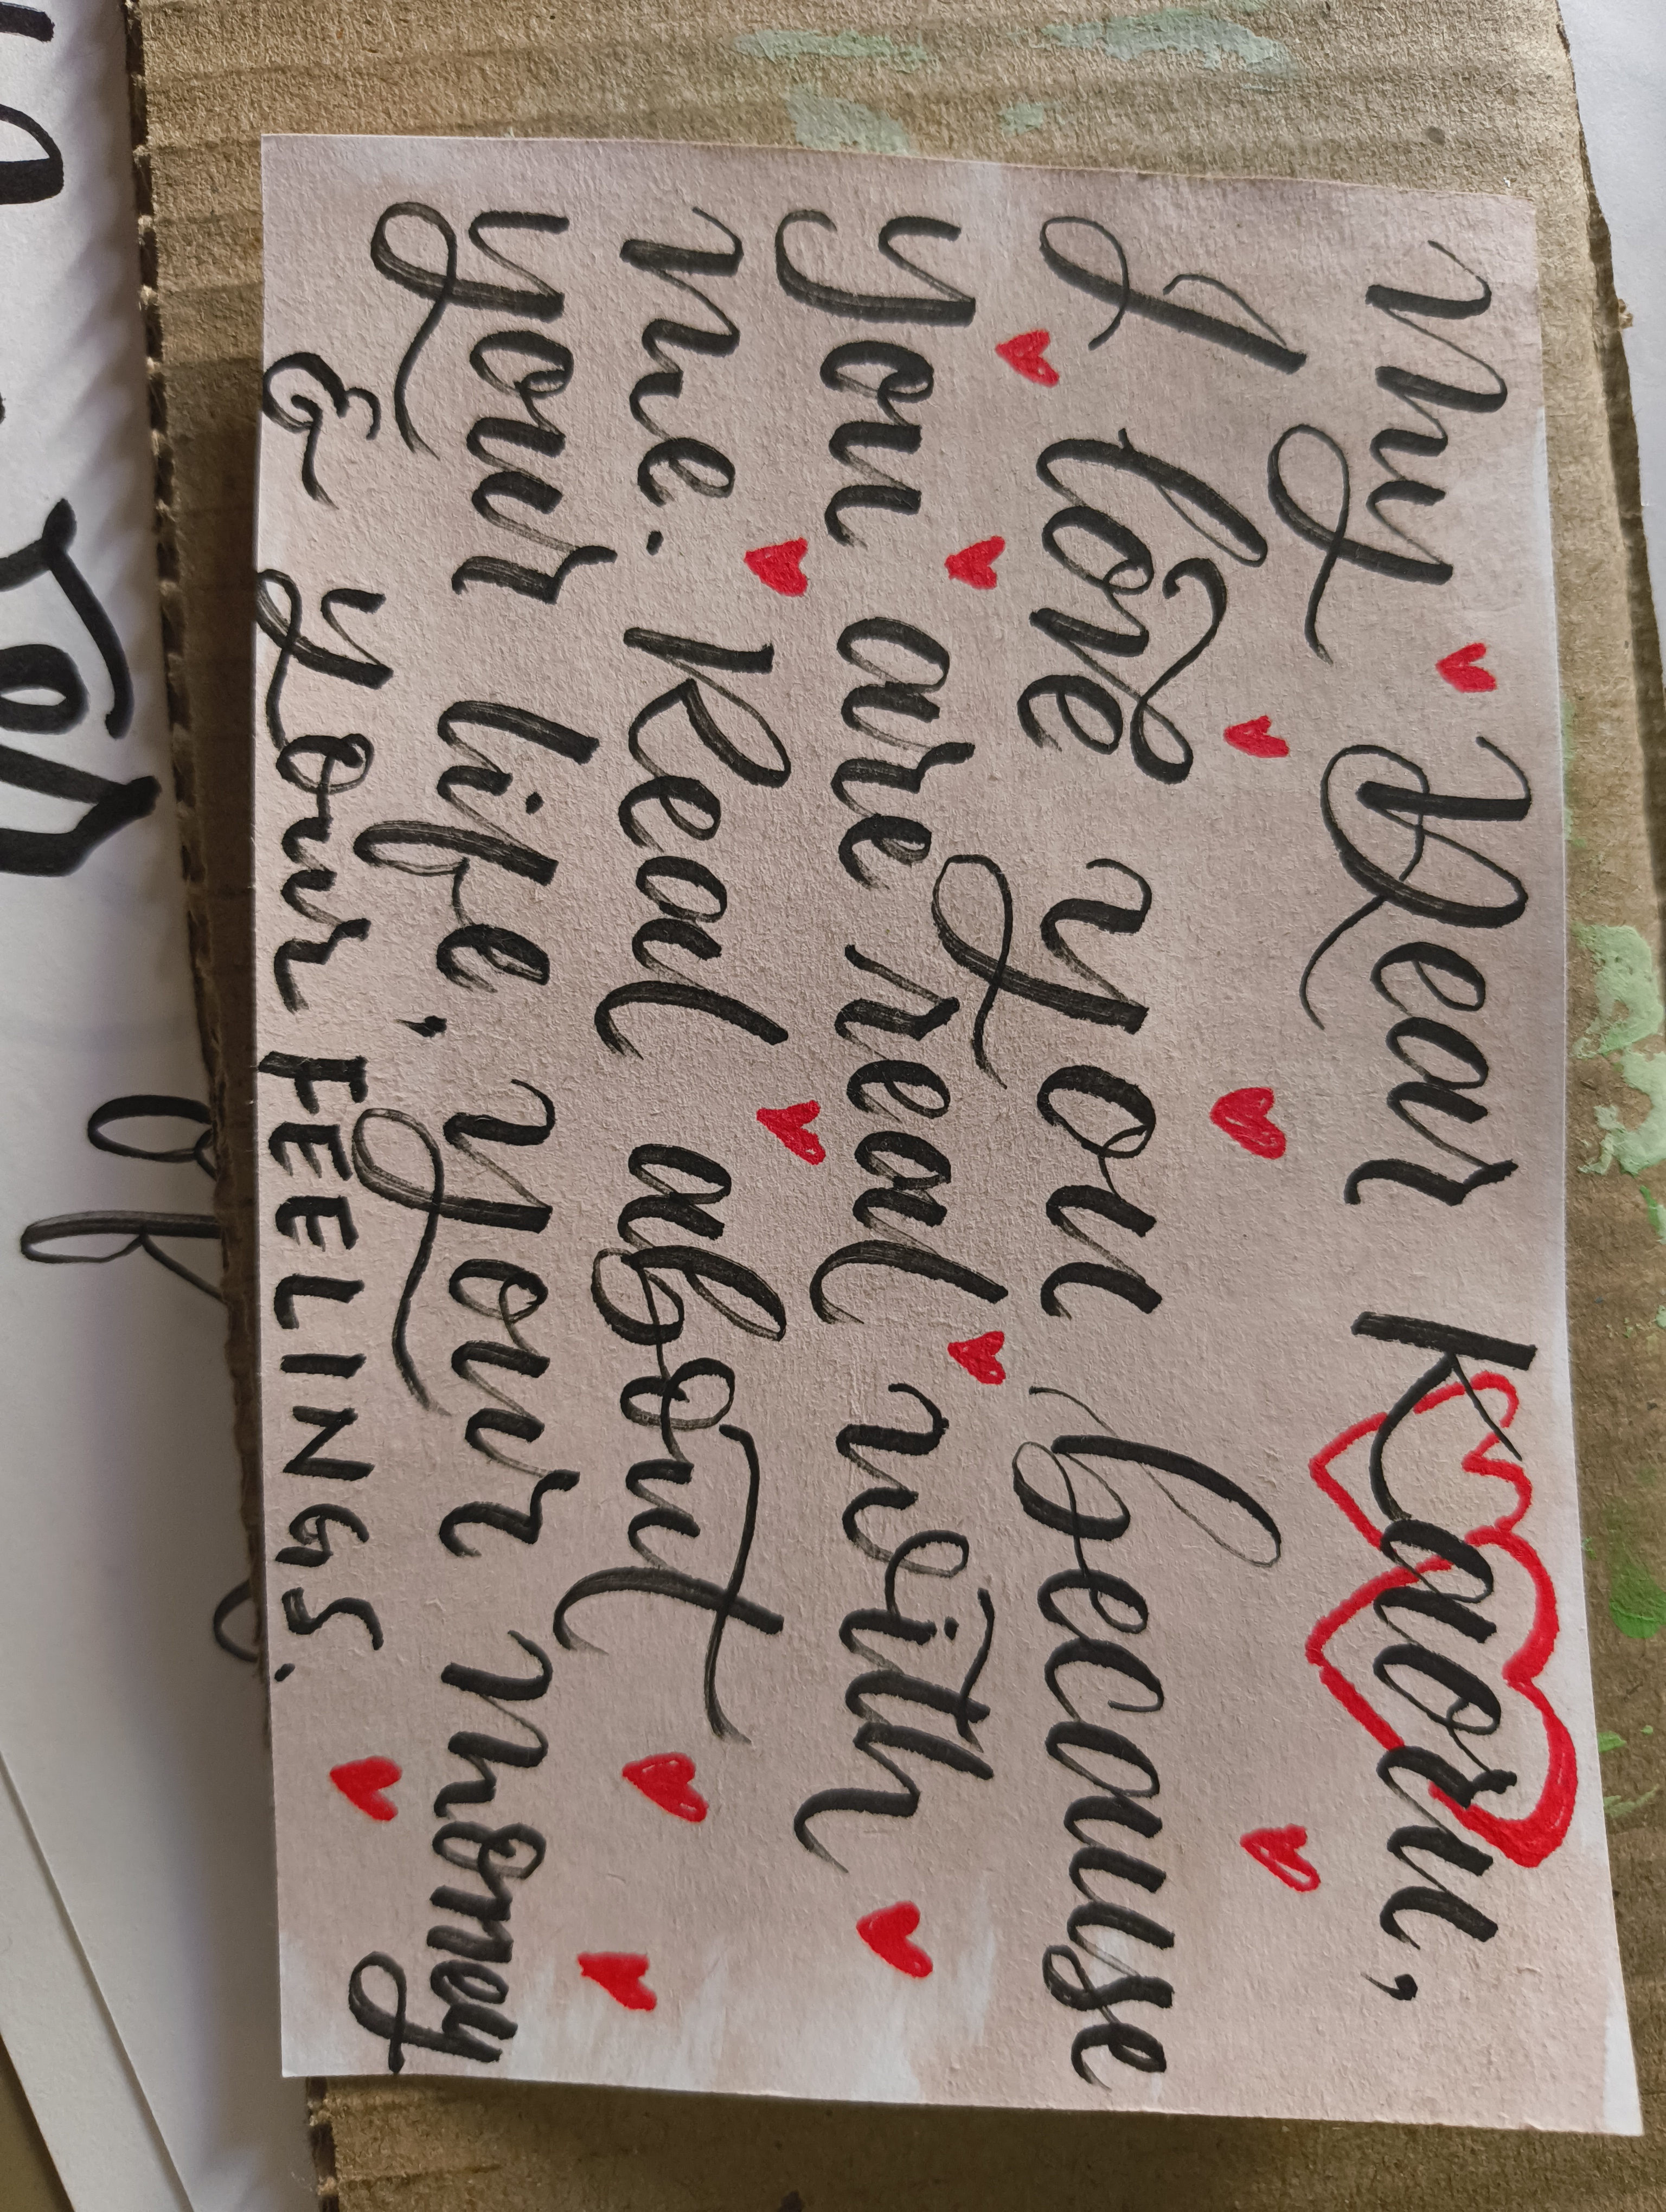 My Dear Kaori,
I love you because
you are real with
me. Real about
your life, your money
& your FEELINGS.